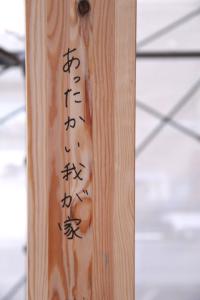 あったかい我が家